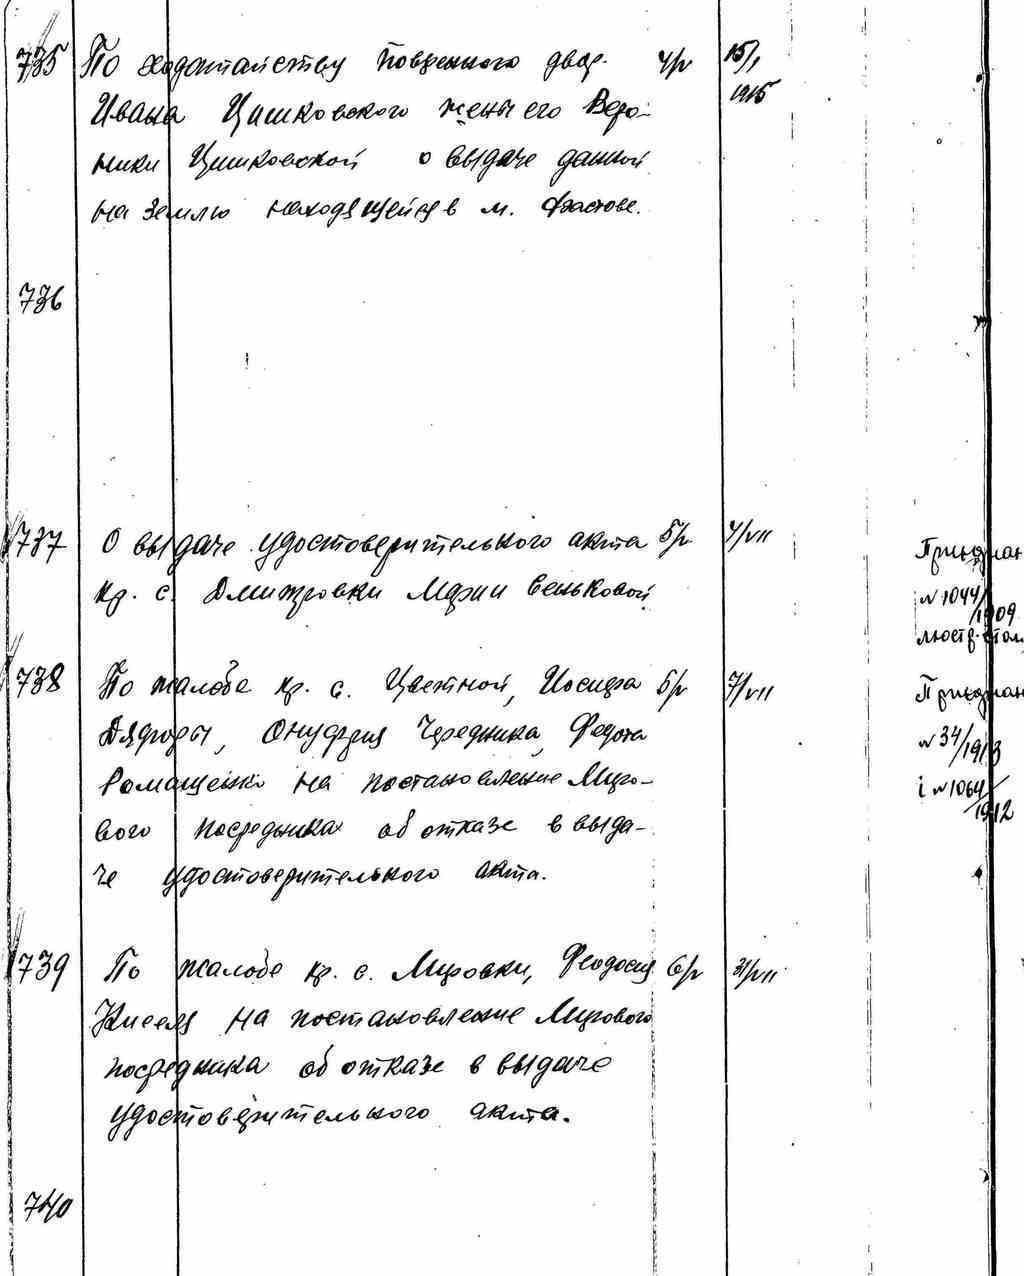 735 По ходатайству повренного двор. 4/V 15/I
Ивана Цишковского жены его Веро- 1915
ники Цишковской о выдаче данной
на землю находящейся в м. Фастове.
736
737 О выдаче удостоверительного акта 5/V 4/VII
кр. с. Дмитровки Марии Сеньковой
Приєднан
N 1044/1909
люстр. стол
738 По жалобе кр. с. Цветной, Иосифа 5/V 7/VII
Онуфрия Чередника, Федота
Ромащенко на постановление Миро-
вого посредника об отказе в выда-
че удостоверительного акта.
Приєднан
N 34/1913
і N 1064/1912
739 По жалобе кр. с. Мировки, Феодосия 6/V 31/VII
Киселя на постановление Мирового
посредника об отказе в выдаче
удостоверительного акта.
740